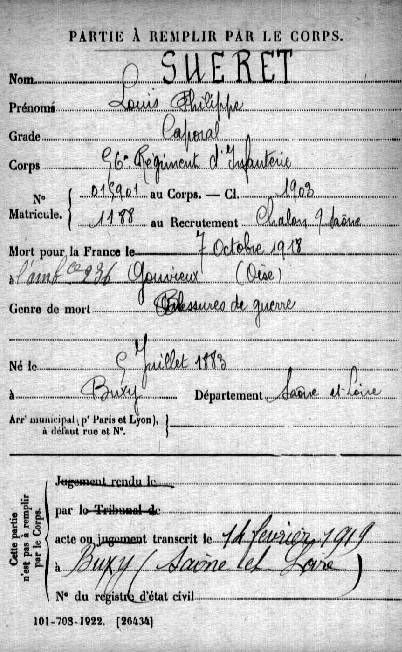 PARTIE À REMPLIR PAR LE CORPS.
Nom SUERET
Prénoms Louis Philippe
Grade Caporal
Corps 56e Régiment d'Infanterie
N° Matricule. { 015901 au Corps. — Cl. 1903
1188 au Recrutement Chalon s/ Saône
Mort pour la France le 7 Octobre 1918
à l'ambce 236 Gouvieux (Oise)
Genre de mort Blessures de guerre
Né le 5 Juillet 1883
à Buxy Département Saône et Loire
Arrt municipal (pr Paris et Lyon), }
à défaut rue et N°.
Cette partie n'est pas à remplir par le Corps.
Jugement rendu le
par le Tribunal de
acte ou jugement transcrit le 14 février 1919
à Buxy (Saône et Loire)
N° du registre d'état civil
101-708-1922. [26434]